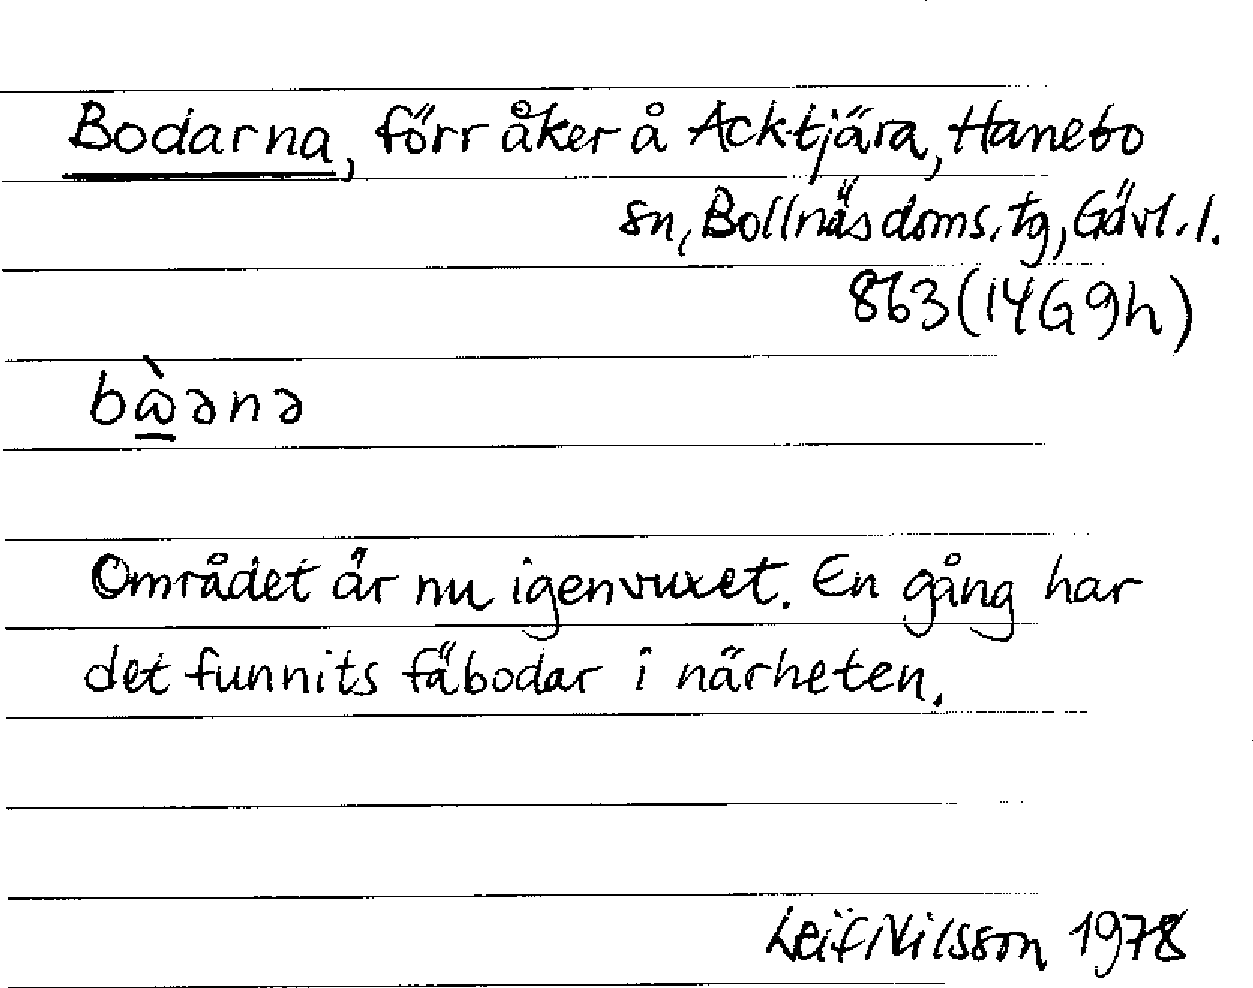 Bodarna, förr åker å Acktjära, Hanebo
sn, Bollnäs doms. tg, Gävl. l.
863 (14G 9h)
bɷ̠̀ənə
Området är nu igenvuxet. En gång har
det funnits fäbodar i närheten.
Leif Nilsson 1978